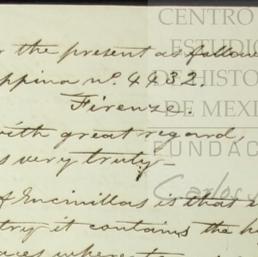 CENTRO
the present as follow
ESTUDIO
ppina no. 4232.
DE HISTO
Firenze.
DE MEXI
with great regard,
very truly—
FUNDAC
Carlos
of Encinillas is that
try it contains the